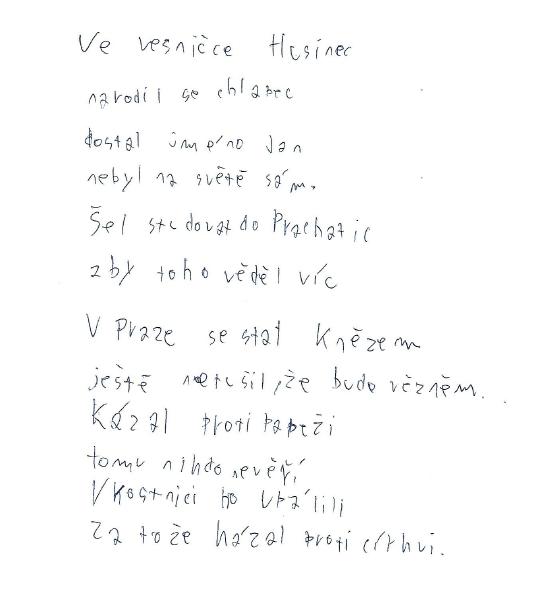 Ve vesničce Husinec
narodil se chlapec
dostal jméno Jan
nebyl na světě sám.
Šel studovat do Prachatic
aby toho věděl víc
V Praze se stal Knězem
ještě netušil, že bude vězněm.
Kázal proti papeži
tomu nikdo nevěří
V Kostnici ho upálili
Za to že kázal proti církvi.